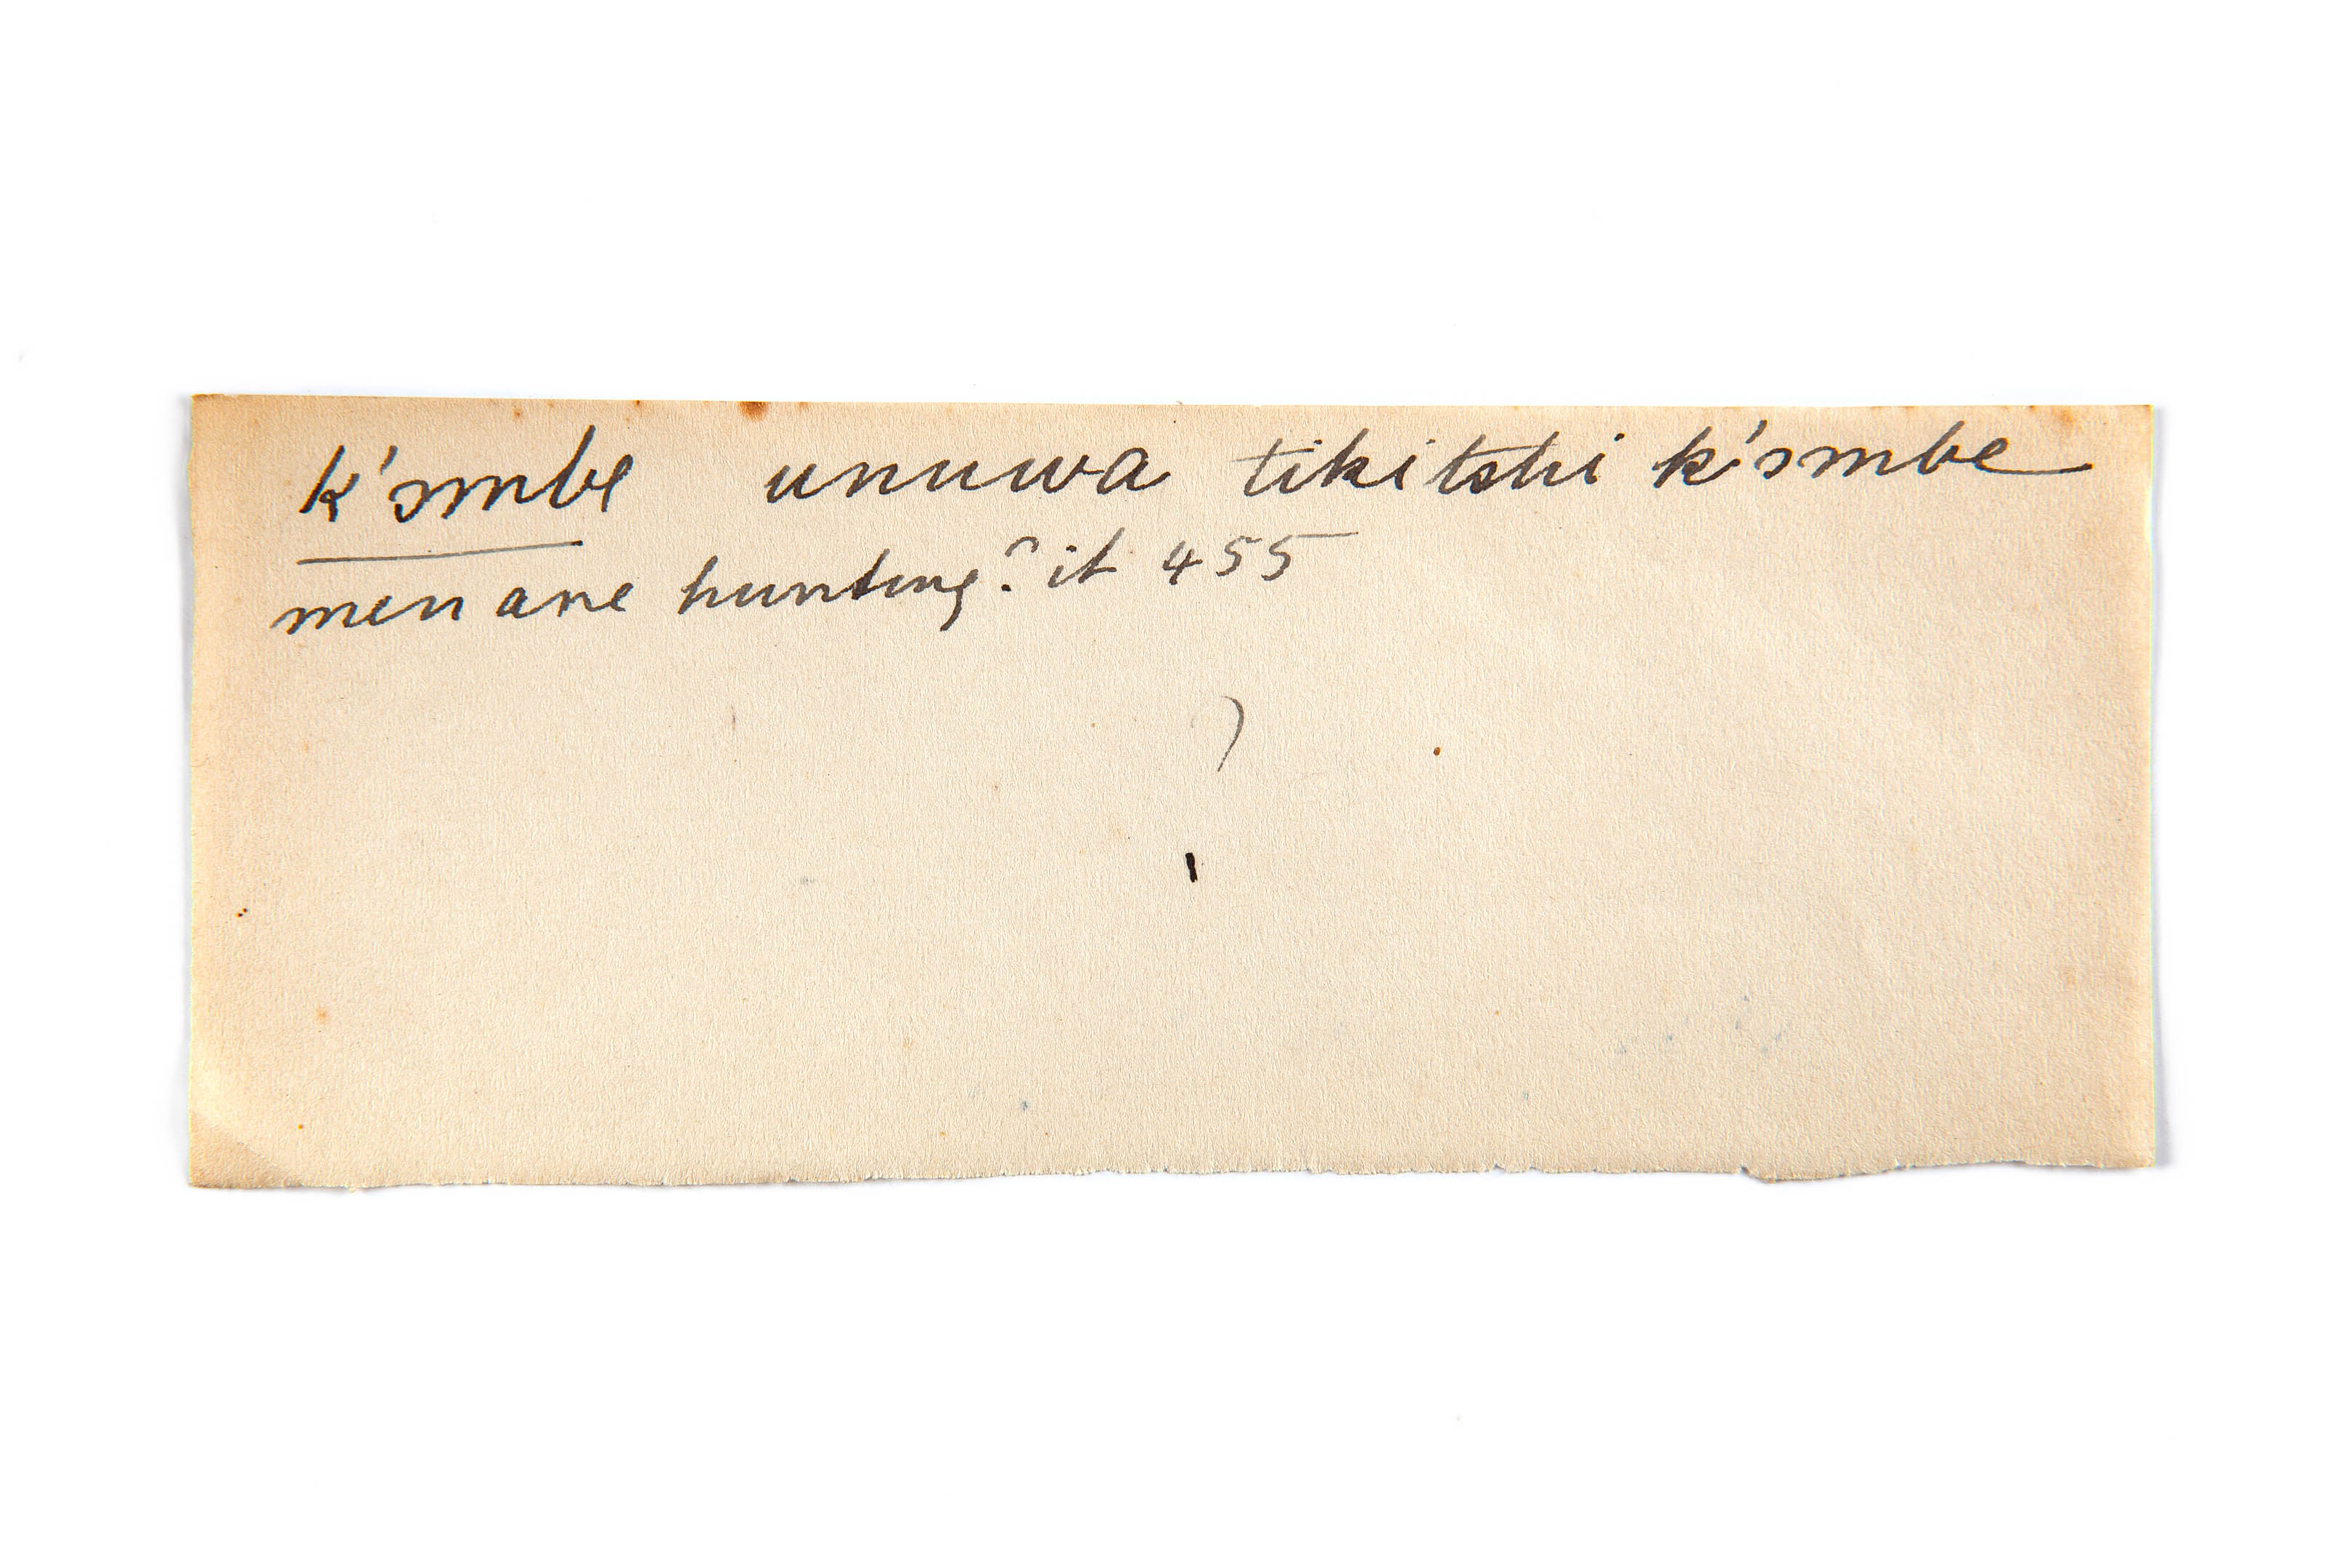 k'ɔmbe unuwa tikitshi k'ɔmbe
men are hunting? it 455